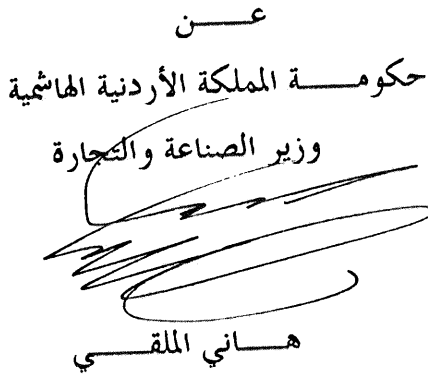 عـــن
حكومـــة المملكة الأردنية الهاشمية
وزير الصناعة والتجارة
هـــاني الملقـــي